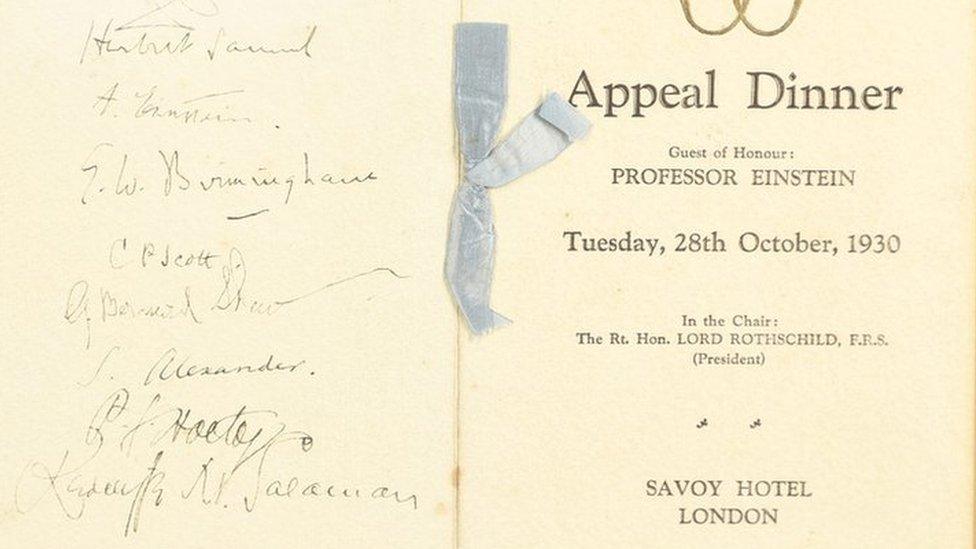 Herbert Samuel
A. Einstein.
E. W. Birmingham
C P Scott
G Bernard Shaw
S. Alexander.
Salaman
Appeal Dinner
Guest of Honour:
PROFESSOR EINSTEIN
Tuesday, 28th October, 1930
In the Chair:
The Rt. Hon. LORD ROTHSCHILD, F.R.S.
(President)
SAVOY HOTEL
LONDON